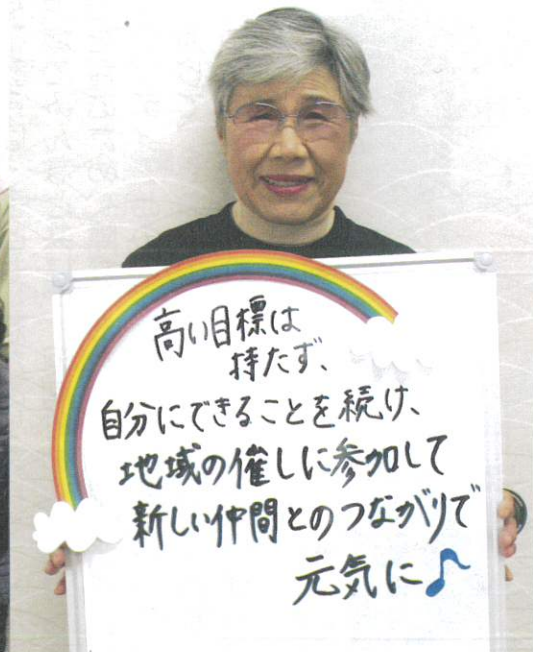 高い目標は
持たず、
自分にできることを続け、
地域の催しに参加して
新しい仲間とのつながりで
元気に♪